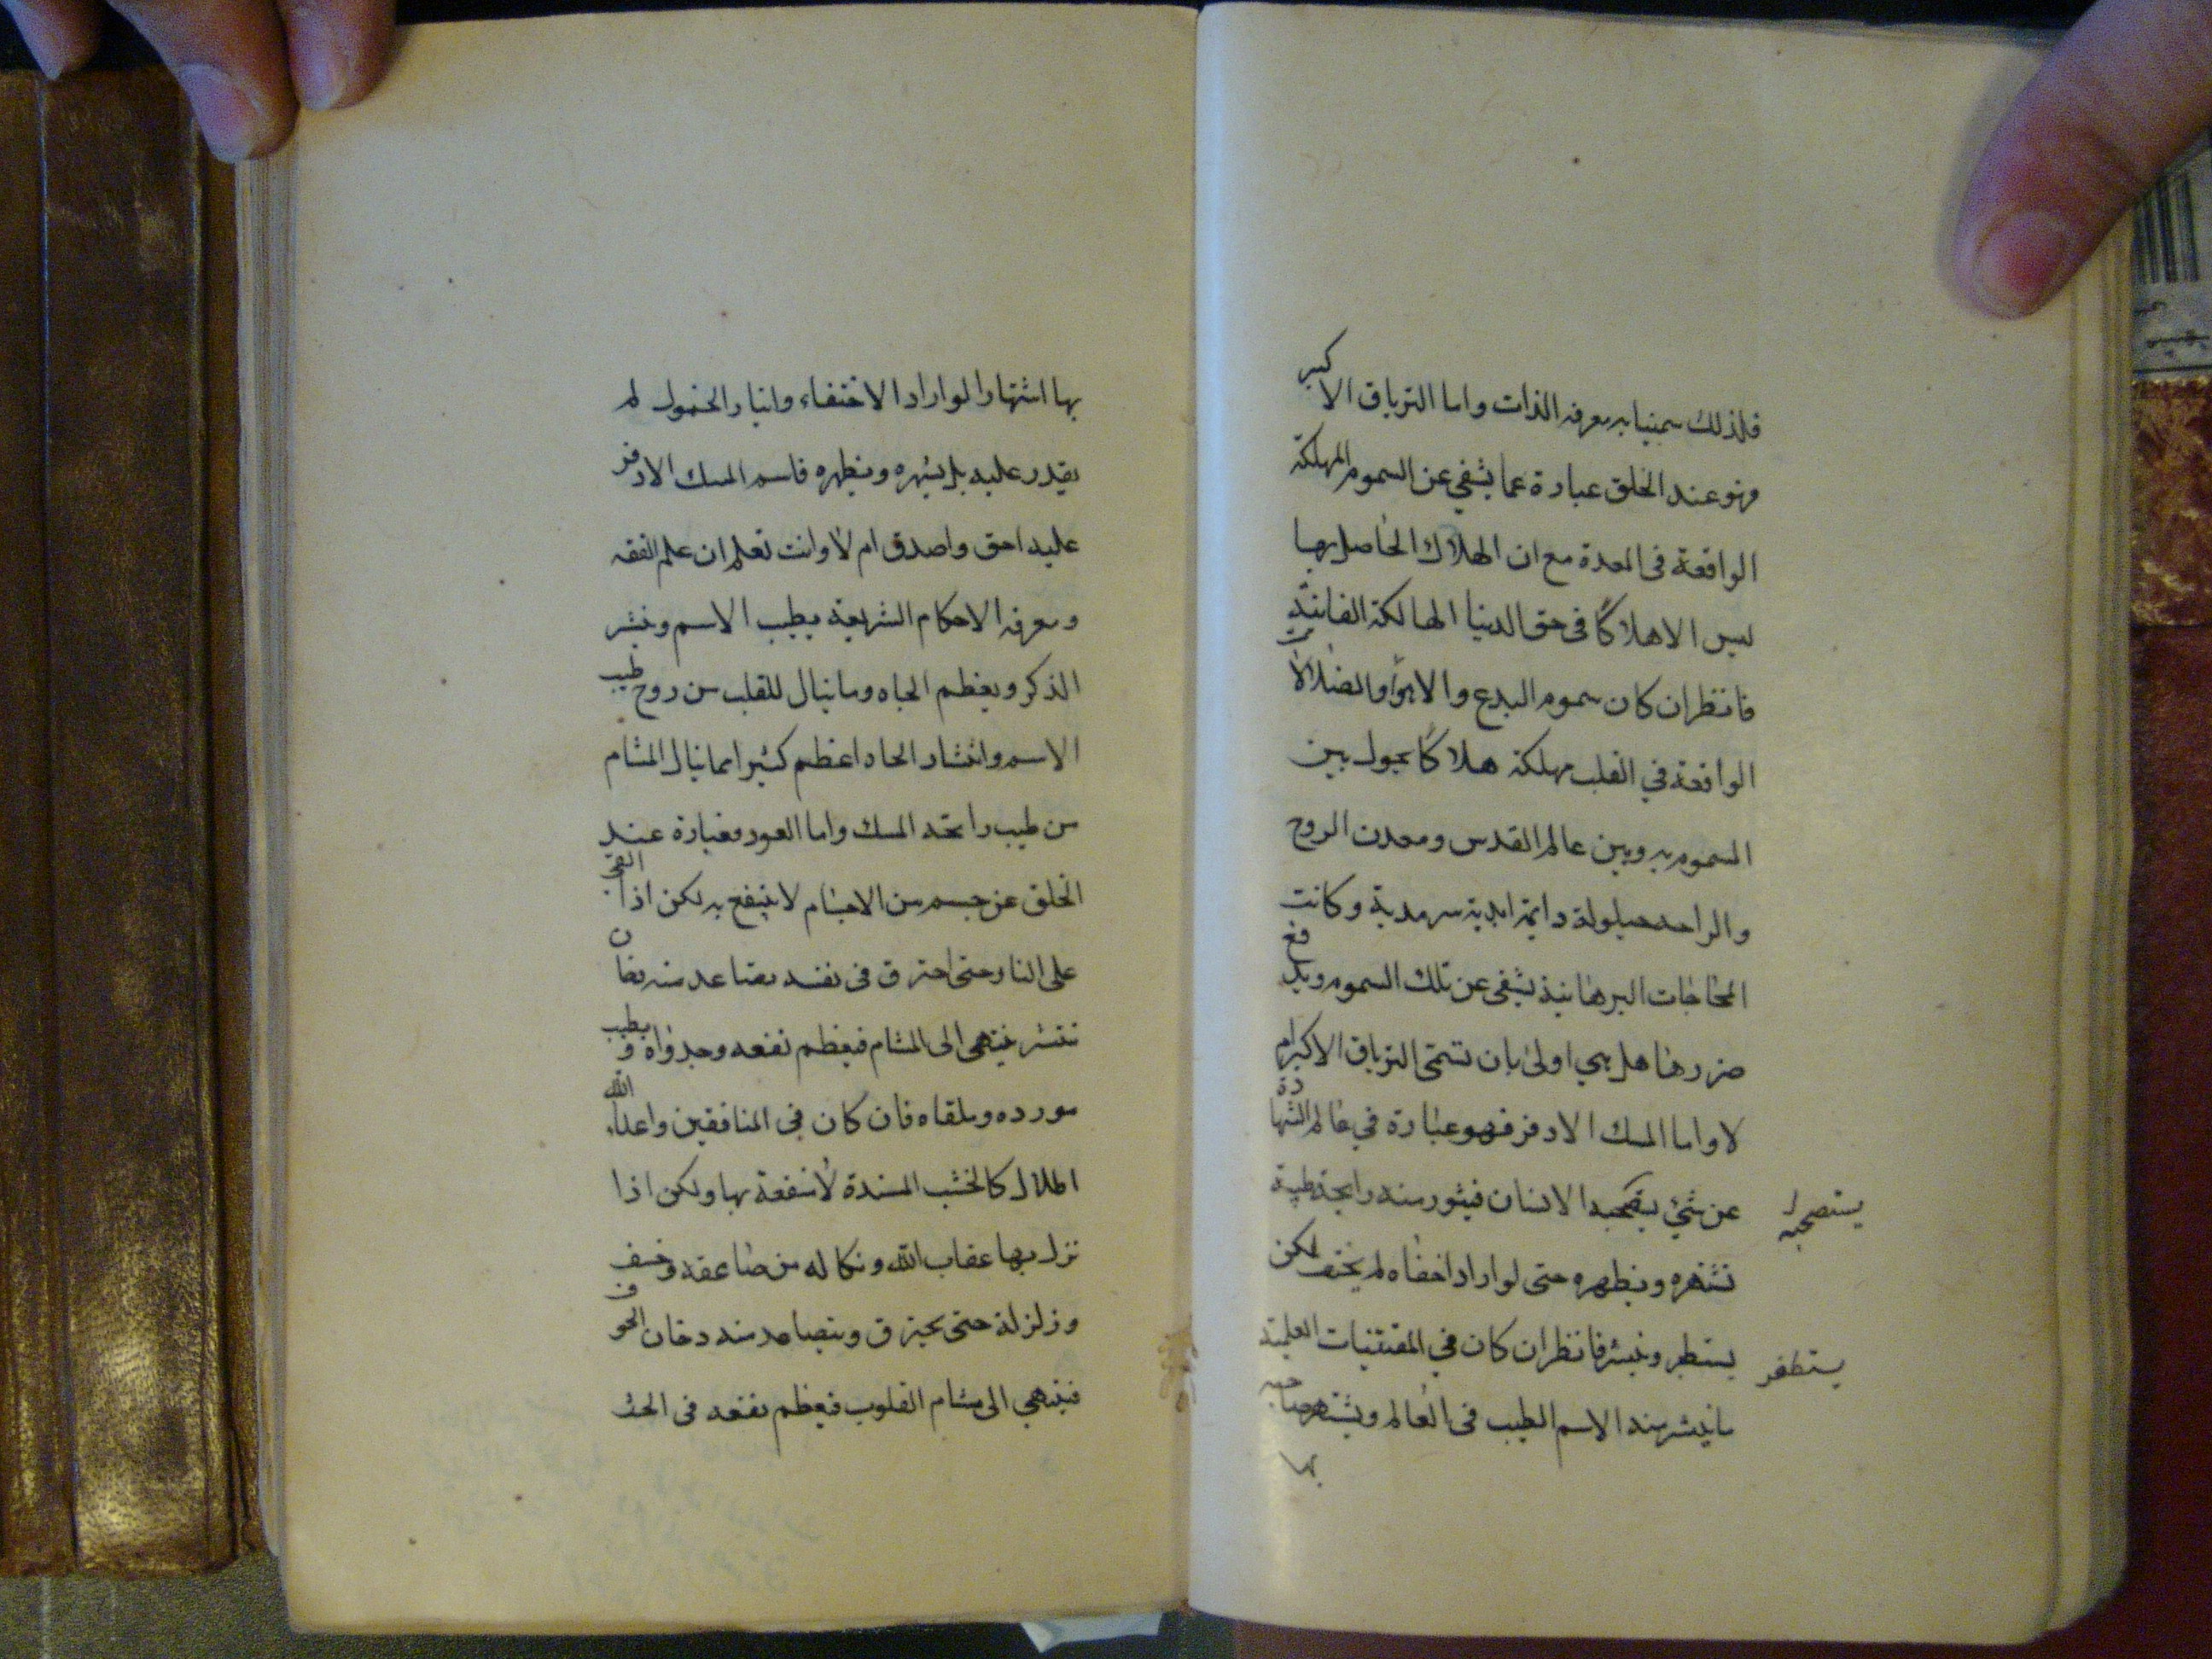 فلذلك سمينا به معرفه الذات واما الترياق الاكبر
وهو عند الخلق عبارة عما يشفي عن السموم المهلكة
الواقعة فى المعدة مع ان الهلاك الحاصل بها
ليس الا هلاكًا فى حق الدنيا الهالكة الفانية
فانظر ان كان سموم البدع والاهواء والضلالات
الواقعة في القلب مهلكة هلاكًا يحول بين
السموم به وبين عالم القدس ومعدن الروح
والراحه حيلولة دايمة ابدية سرمدية وكانت
المحاجات البرهانية يشفى عن تلك السموم ويدفع
ضررها هل هي اولى بان تسمى الترياق الاكبر ام
لا واما المسك الاذفر فهو عبارة في عالم الشهادة
عن شئ يصحبه الانسان فيثور منه رايحة طيبة
يستصحبه
تشهره ويظهره حتى لو اراد اخفاه لم يختف لكن
يستطير وينشر فانظر ان كان في المقتنيات العلمية
يستظفر
ما ينشر منه الاسم الطيب فى العالم ويشتهر صاحبه
بها
بها اشتهارا لو اراد الاختفاء وايثار الخمول لم
يقدر عليه بل يشهره ويظهره فاسم المسك الاذفر
عليه احق واصدق ام لا وانت تعلم ان علم الفقه
ومعرفه الاحكام الشريعة يطيب الاسم وينشر
الذكر ويعظم الجاه وما ينال للقلب من روح طيب
الاسم وانتشار الجاه اعظم كثيرا مما ينال المشام
من طيب رايحه المسك واما العود فعبارة عند
الخلق عن جسم من الاجسام لا ينتفع به لكن اذا القى
على النار حتى احترق فى نفسه تصاعد منه دخان
تنتشر ينتهى الى المشام فيعظم نفعه وجدواه ويطيب
مورده وملقاه فان كان في المنافقين واعداء الله
اظلال كالخشب المسندة لا منفعة بها ولكن اذا
نزل بها عقاب الله ونكاله من صاعقه وخسف
وزلزلة حتى يحترق ويتصاعد منه دخان الخوف
فينتهي الى مشام القلوب فيعظم نفعه فى الحث